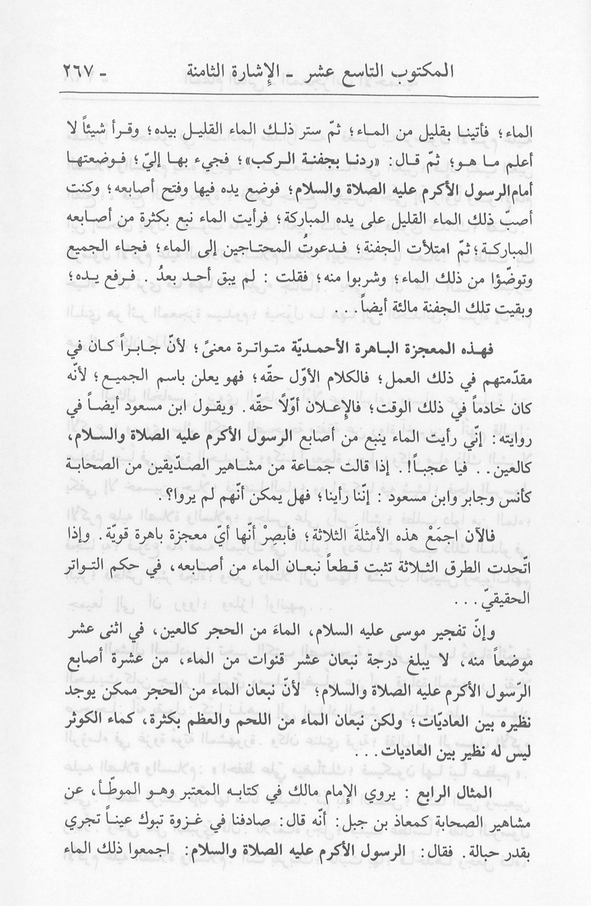 المكتوب التاسع عشر ـ الإشارة الثامنة ـ ٢٦٧
الماء؛ فأتينا بقليل من الماء؛ ثمّ ستر ذلك الماء القليل بيده؛ وقرأ شيئاً لا
أعلم ما هو؛ ثمّ قال: «ردنا بجفنة الركب»؛ فجيء بها إليّ؛ فوضعتها
أمام الرسول الأكرم عليه الصلاة والسلام؛ فوضع يده فيها وفتح أصابعه؛ وكنت
أصبّ ذلك الماء القليل على يده المباركة؛ فرأيت الماء نبع بكثرة من أصابعه
المباركة؛ ثمّ امتلأت الجفنة؛ فدعوتُ المحتاجين إلى الماء؛ فجاء الجميع
وتوضّؤا من ذلك الماء؛ وشربوا منه؛ فقلت : لم يبق أحد بعدُ . فرفع يده؛
وبقيت تلك الجفنة مالئة أيضاً...
فهذه المعجزة الباهرة الأحمديّة متواترة معنىً؛ لأنّ جابراً كان في
مقدّمتهم في ذلك العمل؛ فالكلام الأوّل حقّه؛ فهو يعلن باسم الجميع؛ لأنّه
كان خادماً في ذلك الوقت؛ فالإعلان أوّلًا حقّه. ويقول ابن مسعود أيضاً في
روايته: إنّي رأيت الماء ينبع من أصابع الرسول الأكرم عليه الصلاة والسلام،
كالعين.. فيا عجباً!. إذا قالت جماعة من مشاهير الصدّيقين من الصحابة
كأنس وجابر وابن مسعود : إننا رأينا؛ فهل يمكن أنّهم لم يروا؟.
فالآن اجمَعْ هذه الأمثلةَ الثلاثة؛ فأبصِرْ أنّها أيّ معجزة باهرة قويّة. وإذا
اتّحدت الطرق الثلاثة تثبت قطعاً نبعان الماء من أصابعه، في حكم التواتر
الحقيقيّ...
وإنّ تفجير موسى عليه السلام، الماءَ من الحجر كالعين، في اثنى عشر
موضعاً منه، لا يبلغ درجة نبعان عشر قنوات من الماء، من عشرة أصابع
الرّسول الأكرم عليه الصلاة والسلام؛ لأنّ نبعان الماء من الحجر ممكن يوجد
نظيره بين العاديّات؛ ولكن نبعان الماء من اللحم والعظم بكثرة، كماء الكوثر
ليس له نظير بين العاديات...
المثال الرابع : يروي الإمام مالك في كتابه المعتبر وهو الموطّأ، عن
مشاهير الصحابة كمعاذ بن جبل: أنّه قال: صادفنا في غزوة تبوك عيناً تجري
بقدر حبالة. فقال: الرسول الأكرم عليه الصلاة والسلام: اجمعوا ذلك الماء